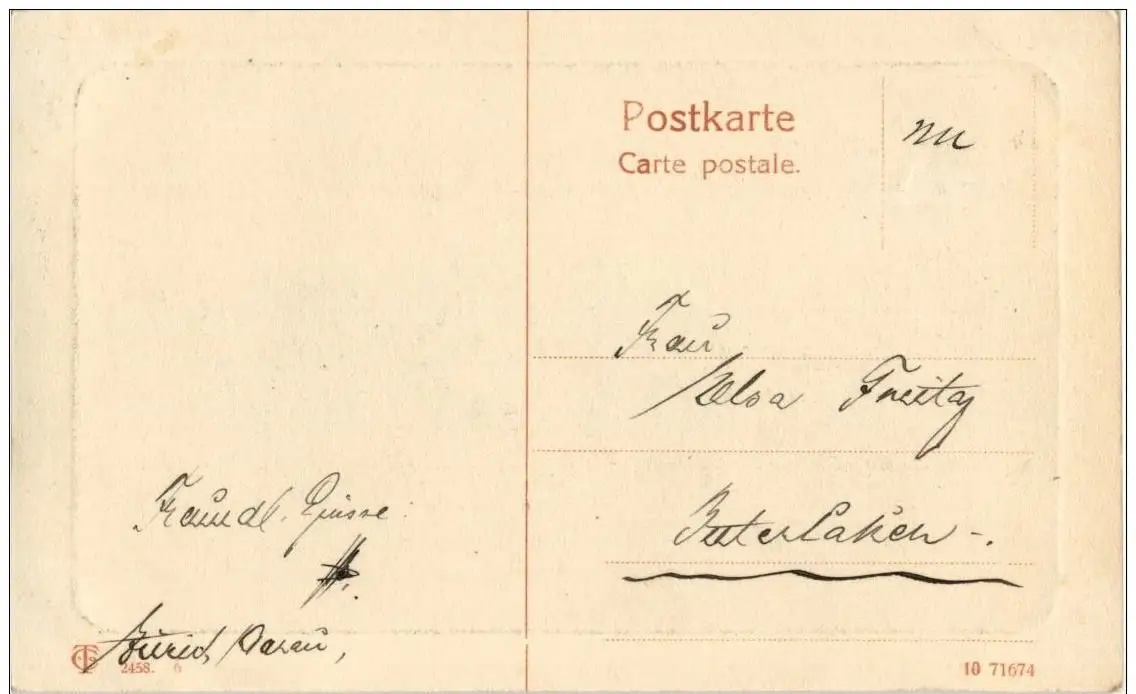 Postkarte
Carte postale.
Frau
Elsa Freitag
Interlaken -.
Freundl. Grüsse.
Zürich Aarau,
2458. 6
10 71674